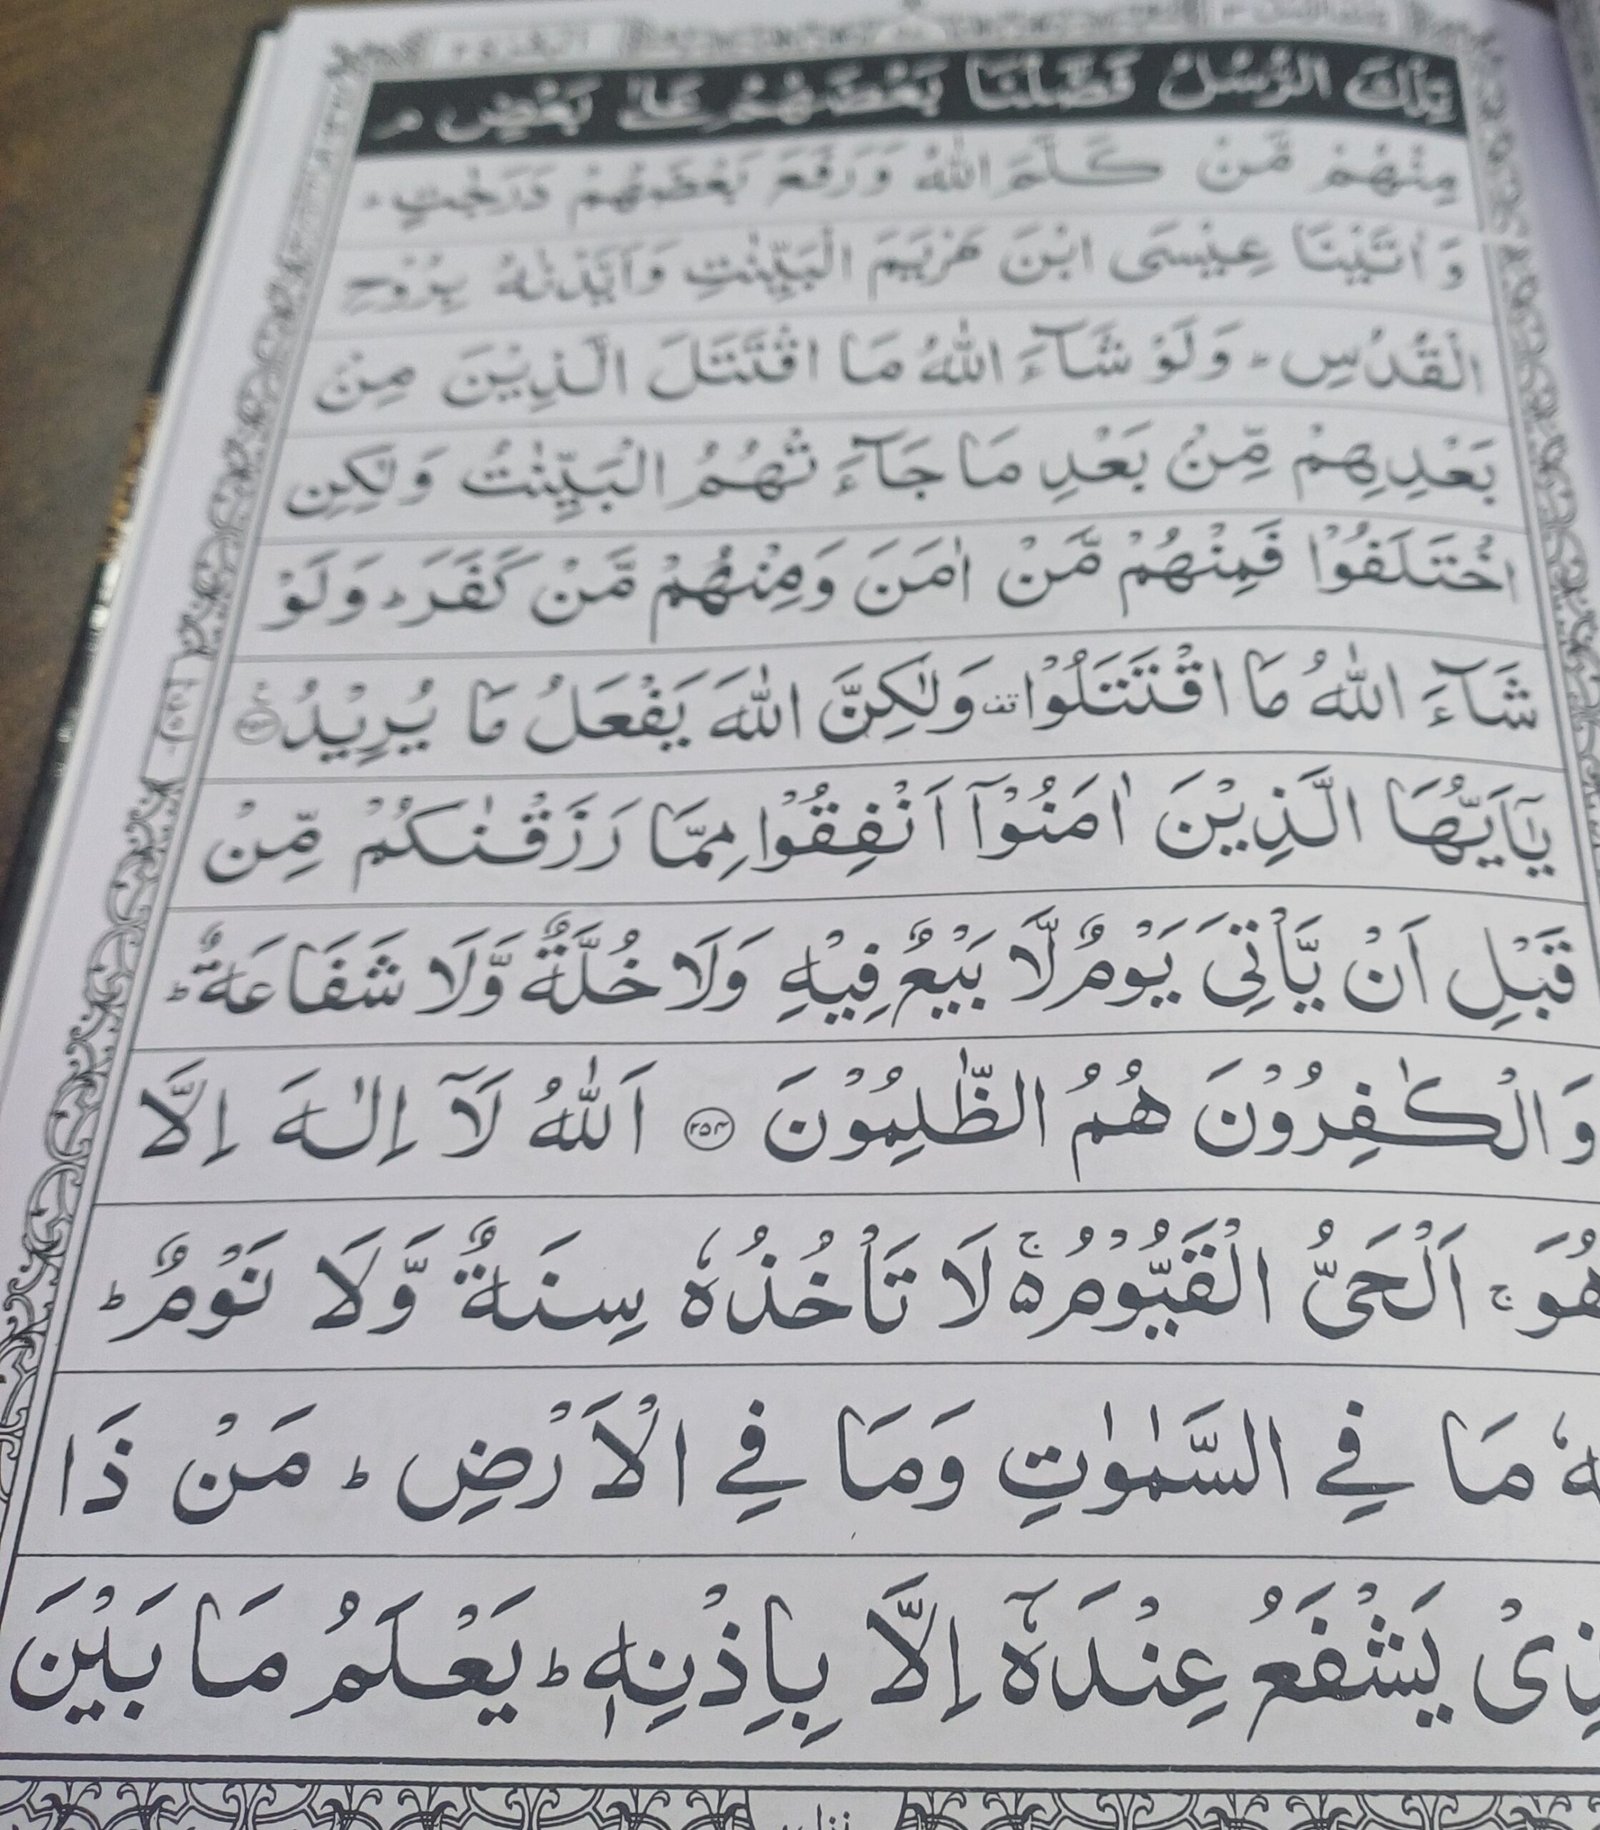 البقرة ٢
تلك الرسل ٣
تِلْكَ الرُّسُلُ فَضَّلْنَا بَعْضَهُمْ عَلٰى بَعْضٍ ۘ
مِنْهُمْ مَّنْ كَلَّمَ اللّٰهُ وَرَفَعَ بَعْضَهُمْ دَرَجٰتٍ ؕ
وَ اٰتَيْنَا عِيْسَى ابْنَ مَرْيَمَ الْبَيِّنٰتِ وَاَيَّدْنٰهُ بِرُوْحِ
الْقُدُسِ ؕ وَلَوْ شَآءَ اللّٰهُ مَا اقْتَتَلَ الَّذِيْنَ مِنْۢ
بَعْدِهِمْ مِّنْۢ بَعْدِ مَا جَآءَتْهُمُ الْبَيِّنٰتُ وَلٰكِنِ
اخْتَلَفُوْا فَمِنْهُمْ مَّنْ اٰمَنَ وَمِنْهُمْ مَّنْ كَفَرَ ؕ وَلَوْ
شَآءَ اللّٰهُ مَا اقْتَتَلُوْا وَلٰكِنَّ اللّٰهَ يَفْعَلُ مَا يُرِيْدُ
يٰۤاَيُّهَا الَّذِيْنَ اٰمَنُوْۤا اَنْفِقُوْا مِمَّا رَزَقْنٰكُمْ مِّنْ
قَبْلِ اَنْ يَّاْتِيَ يَوْمٌ لَّا بَيْعٌ فِيْهِ وَلَا خُلَّةٌ وَّلَا شَفَاعَةٌ ؕ
وَالْكٰفِرُوْنَ هُمُ الظّٰلِمُوْنَ ﴿۲۵۴﴾ اَللّٰهُ لَاۤ اِلٰهَ اِلَّا
هُوَ ۚ اَلْحَيُّ الْقَيُّوْمُ ۚ۬ لَا تَاْخُذُهٗ سِنَةٌ وَّلَا نَوْمٌ ؕ
مَا فِي السَّمٰوٰتِ وَمَا فِي الْاَرْضِ ؕ مَنْ ذَا
يَشْفَعُ عِنْدَهٗۤ اِلَّا بِاِذْنِهٖ ؕ يَعْلَمُ مَا بَيْنَ